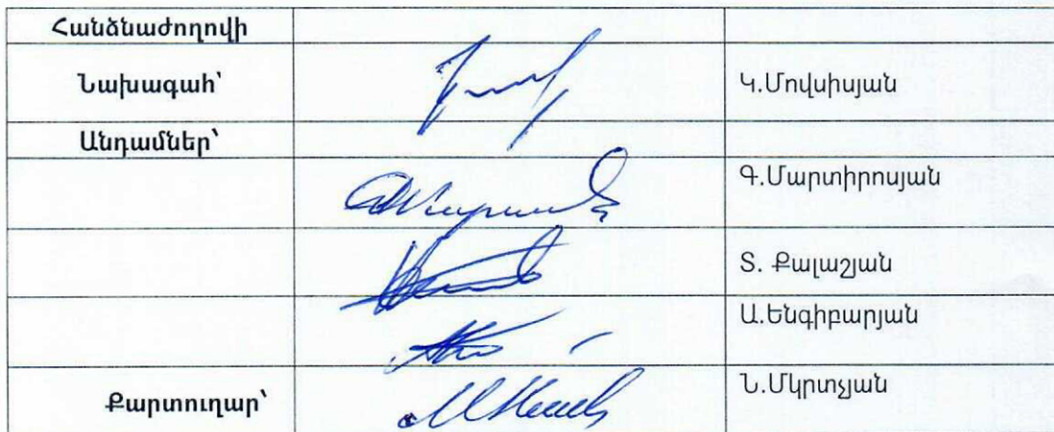 Հանձնաժողովի
Նախագահ՝ Կ.Մովսիսյան
Անդամներ՝
Գ.Մարտիրոսյան
Տ. Քալաշյան
Ա.Ենգիբարյան
Քարտուղար՝ Ն.Մկրտչյան